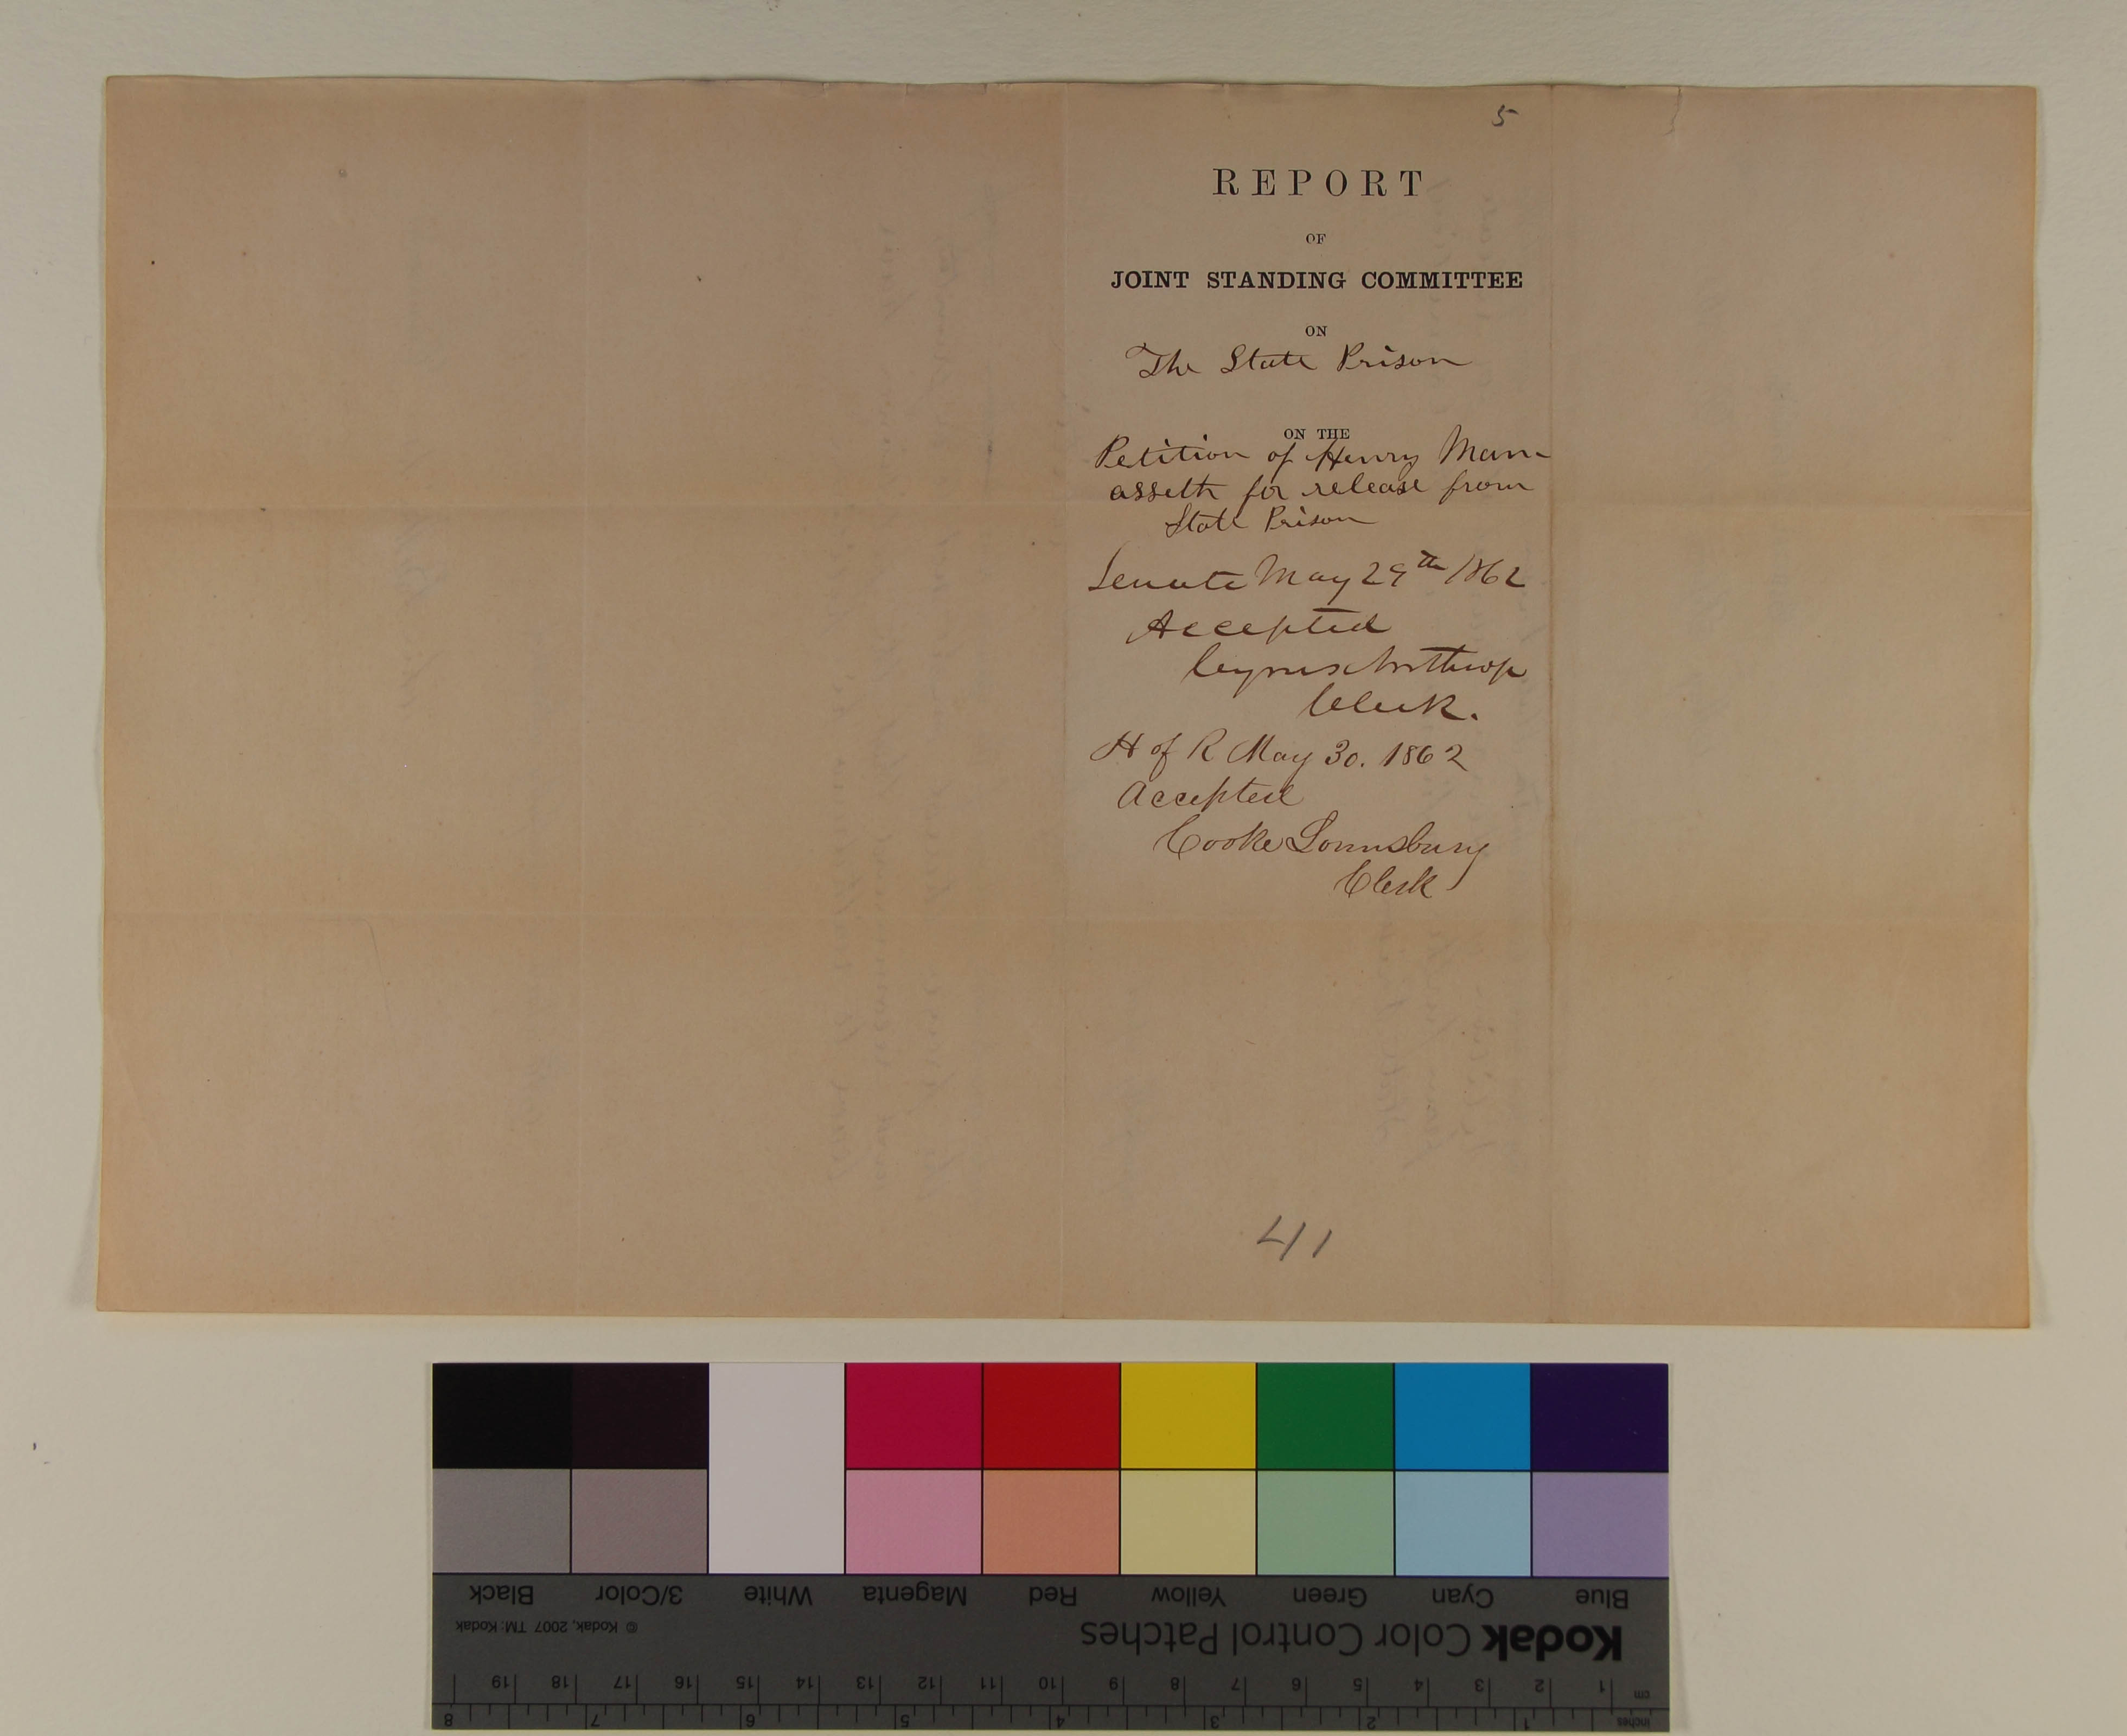 5
REPORT
OF
JOINT STANDING COMMITTEE
ON
The State Prison
ON THE
Petition of Henry Mann-
asseth for release from
State Prison
Senate May 29th 1862
Accepted
Cyrus Northrop
Clerk.
H of R May 30. 1862
Accepted
Cooke Lounsbury
Clerk
41
Black 3/Color White Magenta Red Yellow Green Cyan Blue
© Kodak, 2007 TM: Kodak
Kodak Color Control Patches
cm 1 2 3 4 5 6 7 8 9 10 11 12 13 14 15 16 17 18 19
inches 1 2 3 4 5 6 7 8